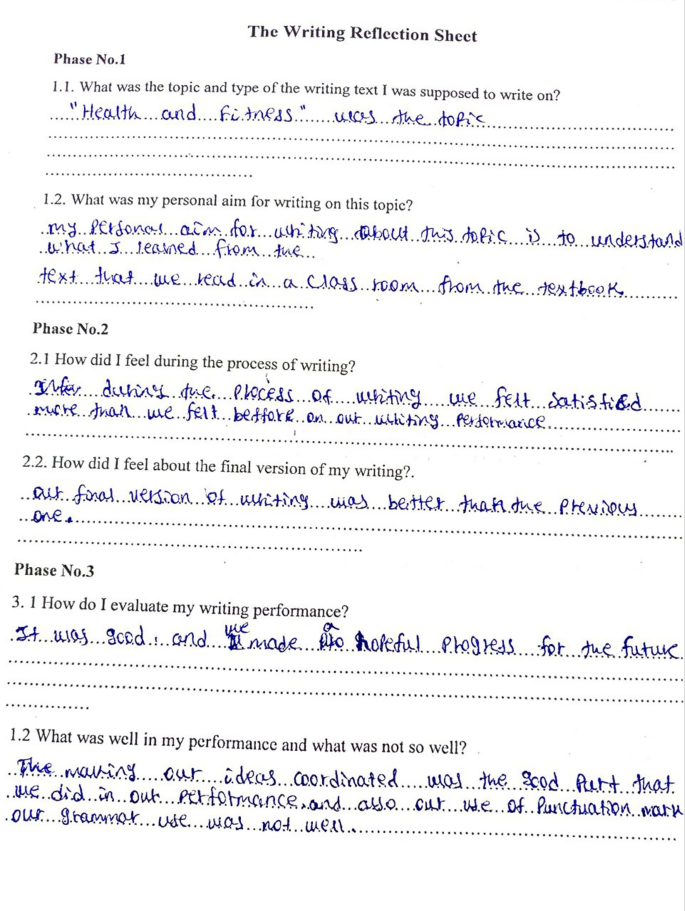 The Writing Reflection Sheet
Phase No.1
1.1. What was the topic and type of the writing text I was supposed to write on?
"Health and fitness" was the topic
1.2. What was my personal aim for writing on this topic?
my personal aim for writing about this topic is to understand
what I learned from the
text that we read in a class room from the textbook
Phase No.2
2.1 How did I feel during the process of writing?
during the process of writing we felt satisfied
more than we felt beffore on our writing performance
2.2. How did I feel about the final version of my writing?.
our final version of writing was better than the previous
one.
Phase No.3
3. 1 How do I evaluate my writing performance?
It was good, and we made a hopeful progress for the future
1.2 What was well in my performance and what was not so well?
The making our ideas coordinated was the good part that
we did in our performance, and also our use of punctuation mark
our grammar use was not well.